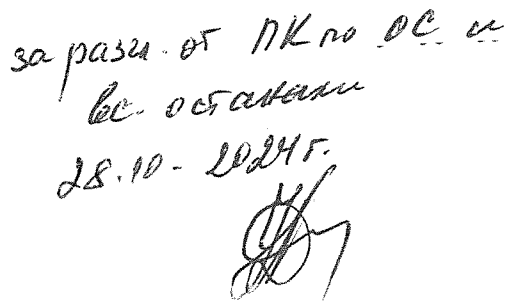 за разгл. от ПК по ОС и
вс. останали
28.10. 2024 г.